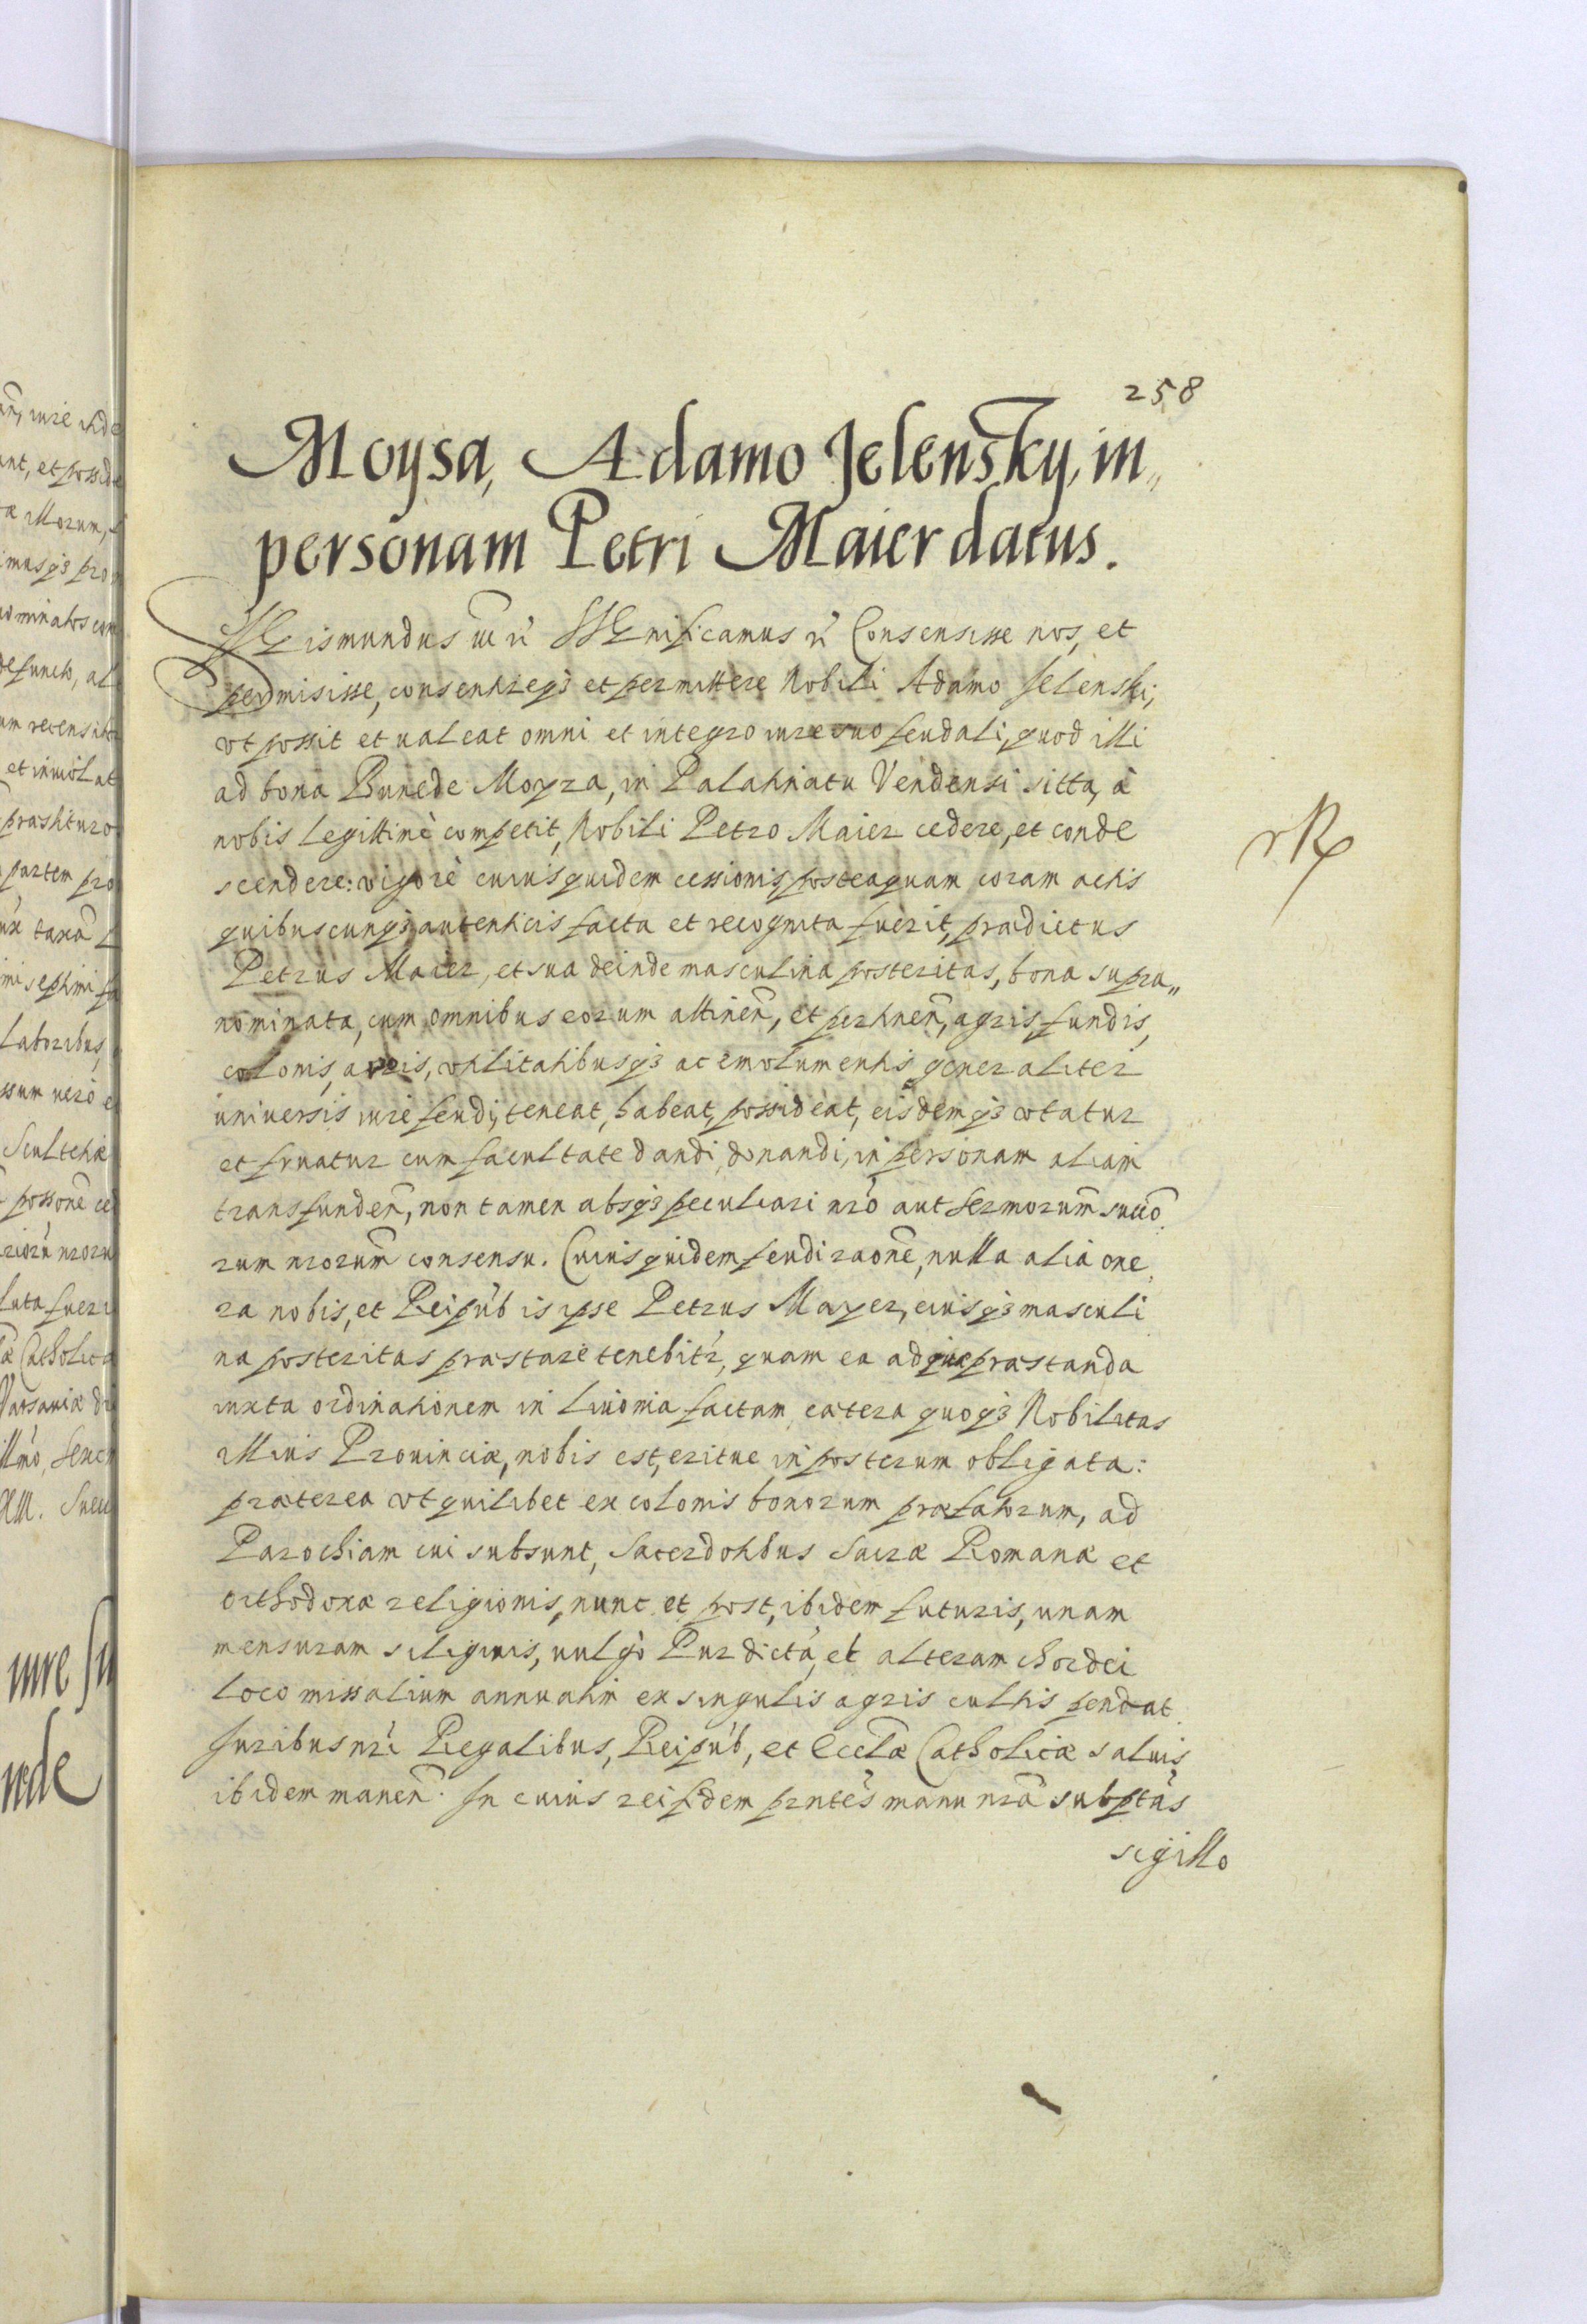 258
Moysa, Adamo Jelensky, in„
personam Petri Maier datus.
Sigismundus etc. Significamus etc. Consensisse nos, et
permisisse, consentireq3 et permittere Nobili Adamo Jelenski,
vt possit et ualeat omni et integro iure suo feudali, quod illi
ad bona Bunede Moyza, in Palatinatu Vendensi sitta, à
nobis legittimè competit, Nobili Petro Maier cedere, et conde
scendere: vigore cuius quidem cessionis, posteaquam coram actis
quibuscunq3 autenticis facta et recognita fuerit, prædictus
Petrus Maier, et sua deinde masculina posteritas, bona supra„
nominata, cum omnibus eorum attineñ, et pertineñ, agris, fundis,
colonis, aruis, vtilitatibusq3 ac emolumentis generaliter
universis iure feudi, teneat, habeat, possideat, eisdemq3 vtatur
et fruatur cum facultate dandi, donandi, in personam aliam
transfundeñ, non tamen absq3 peculiari nrõ aut Sermorum̃ succo
rum nrorum̃ consensu. Cuius quidem feudi raone, nulla alia one
ra nobis, et Reipub is ipse Petrus Mayer, eiusq3 masculi
na posteritas præstare tenebitr, quam ea ad quæ præstanda
iuxta ordinationem in Liuonia factam cætera quoq3 Nobilitas
illius Prouinciæ, nobis est, eritue in posterum obligata:
præterea vt quilibet ex colonis bonorum præfatorum, ad
Parochiam cui subsunt, Sacerdotibus Sacræ Romanæ et
orthodoxæ religionis, nunc et post, ibidem futuris, unam
mensuram siliginis, uulgò Pur dictã, et alteram hordei
loco missalium annuatim ex singulis agris cultis pendat
Juribus nri Regalibus, Reipub, et Ecclæ Catholicæ saluis
ibidem maneñ. In cuius rei fidem pntes manu nrã subptas
sigillo